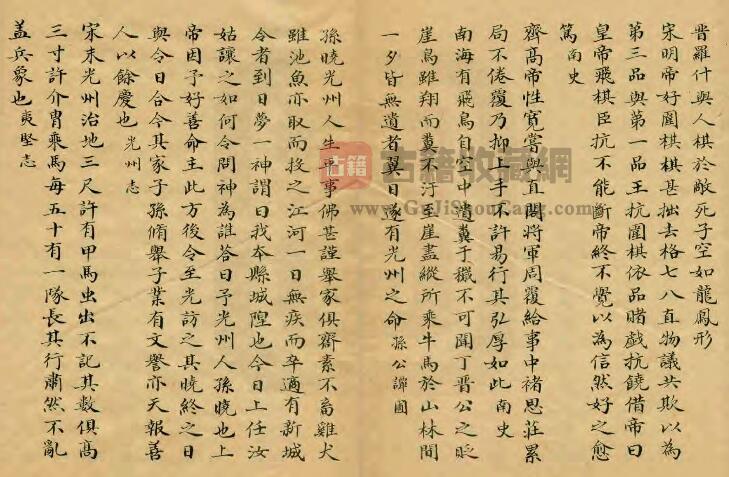 晋羅什與人棋於敵死子空如龍鳳形
宋明帝好圍棋棋甚拙去格七八直物議共欺以為
第三品與第一品王抗圍棋依品賭戯抗饒借帝曰
皇帝飛棋臣抗不能斷帝終不覺以為信然好之愈
篤南史
齊高帝性寛嘗與直閣將軍周覆給事中褚思莊累
局不倦覆乃抑上手不許易行其弘厚如此南史
南海有飛鳥自空中遺糞于穢不可聞丁晋公之貶
崖鳥雖翔而糞不汙至崖盡縱所乘牛馬於山林間
一夕皆無遺者翼日遂有光州之命孫公譚圃
孫曉光州人生平事佛甚謹舉家俱齋素不畜雞犬
雖池魚亦取而投之江河一日無疾而卒適有新城
令者到日夢一神謂曰我本縣城隍也今日上任汝
姑讓之如何令問神為誰答曰予光州人孫曉也上
帝因予好善命主此方後令至光訪之其曉終之日
與令日合今其家子孫脩舉子業有文譽亦天報善
人以餘慶也光州志
宋末光州治地三尺許有甲馬虫出不記其數俱高
三寸許介胄乘馬每五十有一隊長其行肅然不亂
盖兵象也夷堅志
古籍 古籍收藏網
www.GuJiShouCang.com